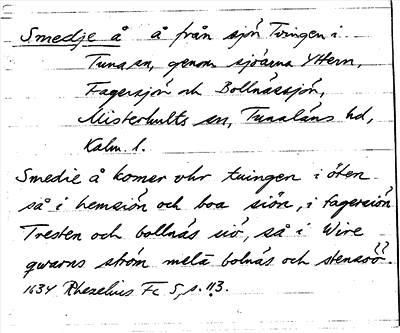 Smedje å å från sjön Tvingen i
Tuna sn, genom sjöarna Yttern,
Fagersjön och Bollnässjön,
Misterhults sn, Tunaläns hd,
Kalm. l.
Smedie å komer vhr tuingen i öten
så i hemsiön och boa siön, i fagersiön
Tresten och bollnäs siö, så i Wire
qwarns ström melä bolnäs och stensöö.
1634 Rhezelius Fc 5, s. 113.